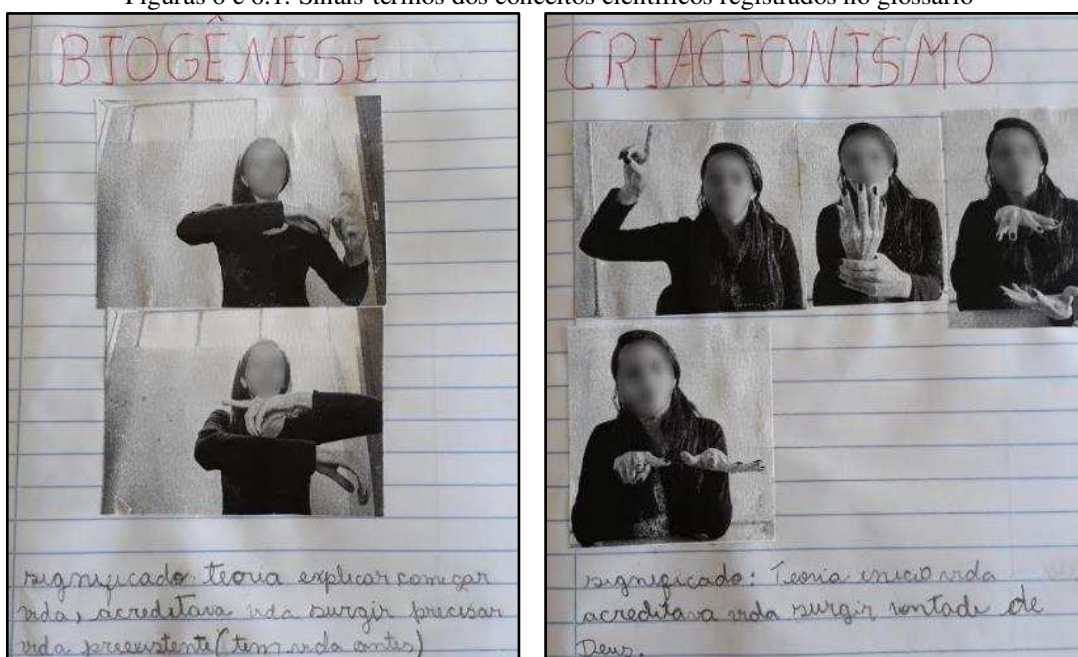 Figuras 6 e 6.1: Sinais-termos dos conceitos científicos registrados no glossário
BIOGÊNESE
significado teoria explicar começar
vida, acreditava vida surgir precisar
vida preexistente (tem vida antes)
CRIACIONISMO
significado: Teoria inicio vida
acreditava vida surgir vontade de
Deus.